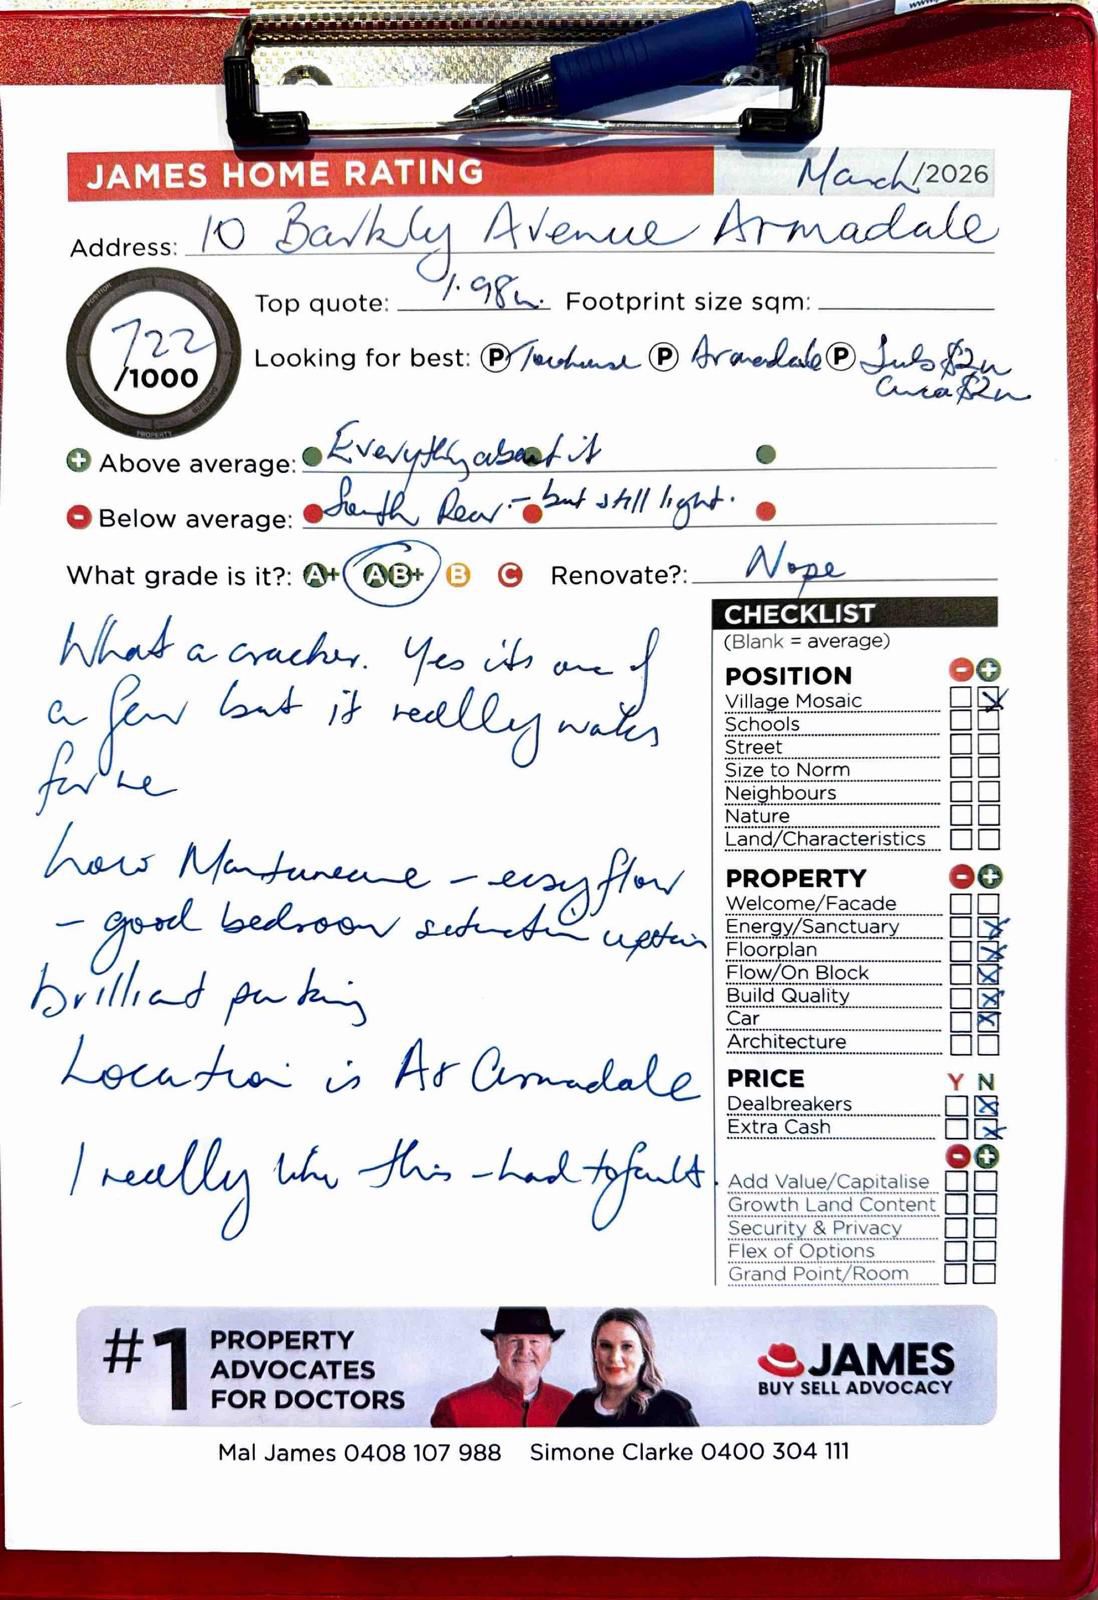 JAMES HOME RATING March/2026
Address: 10 Barkly Avenue Armadale
Top quote: 1.98m. Footprint size sqm:
722
/1000
Looking for best: P Townhouse P Armadale P Subs $2m
Circa $2m
+ Above average: Everything about it
- Below average: South Rear - but still light.
What grade is it?: A+ AB+ B C Renovate?: Nope
What a cracker. Yes its one of
a few but it really works
for me
Low Maintenance - easy flow
- good bedroom situation upstairs
brilliant parking
Location is A+ Armadale
I really like this - hard to fault.
CHECKLIST
(Blank = average)
POSITION - +
Village Mosaic
Schools
Street
Size to Norm
Neighbours
Nature
Land/Characteristics
PROPERTY - +
Welcome/Facade
Energy/Sanctuary
Floorplan
Flow/On Block
Build Quality
Car
Architecture
PRICE Y N
Dealbreakers
Extra Cash
- +
Add Value/Capitalise
Growth Land Content
Security & Privacy
Flex of Options
Grand Point/Room
#1 PROPERTY
ADVOCATES
FOR DOCTORS
JAMES
BUY SELL ADVOCACY
Mal James 0408 107 988 Simone Clarke 0400 304 111